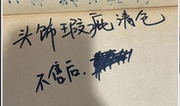 头饰瑕疵清仓
不售后.